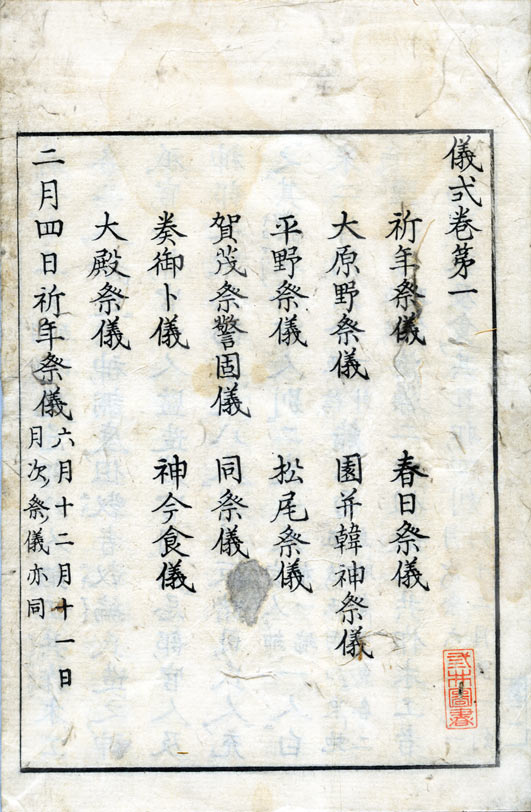 儀式卷第一
祈年祭儀 春日祭儀
大原野祭儀 園并韓神祭儀
平野祭儀 松尾祭儀
賀茂祭警固儀 同祭儀
奏御卜儀 神今食儀
大殿祭儀
二月四日祈年祭儀
六月十二月十一日
月次祭儀亦同